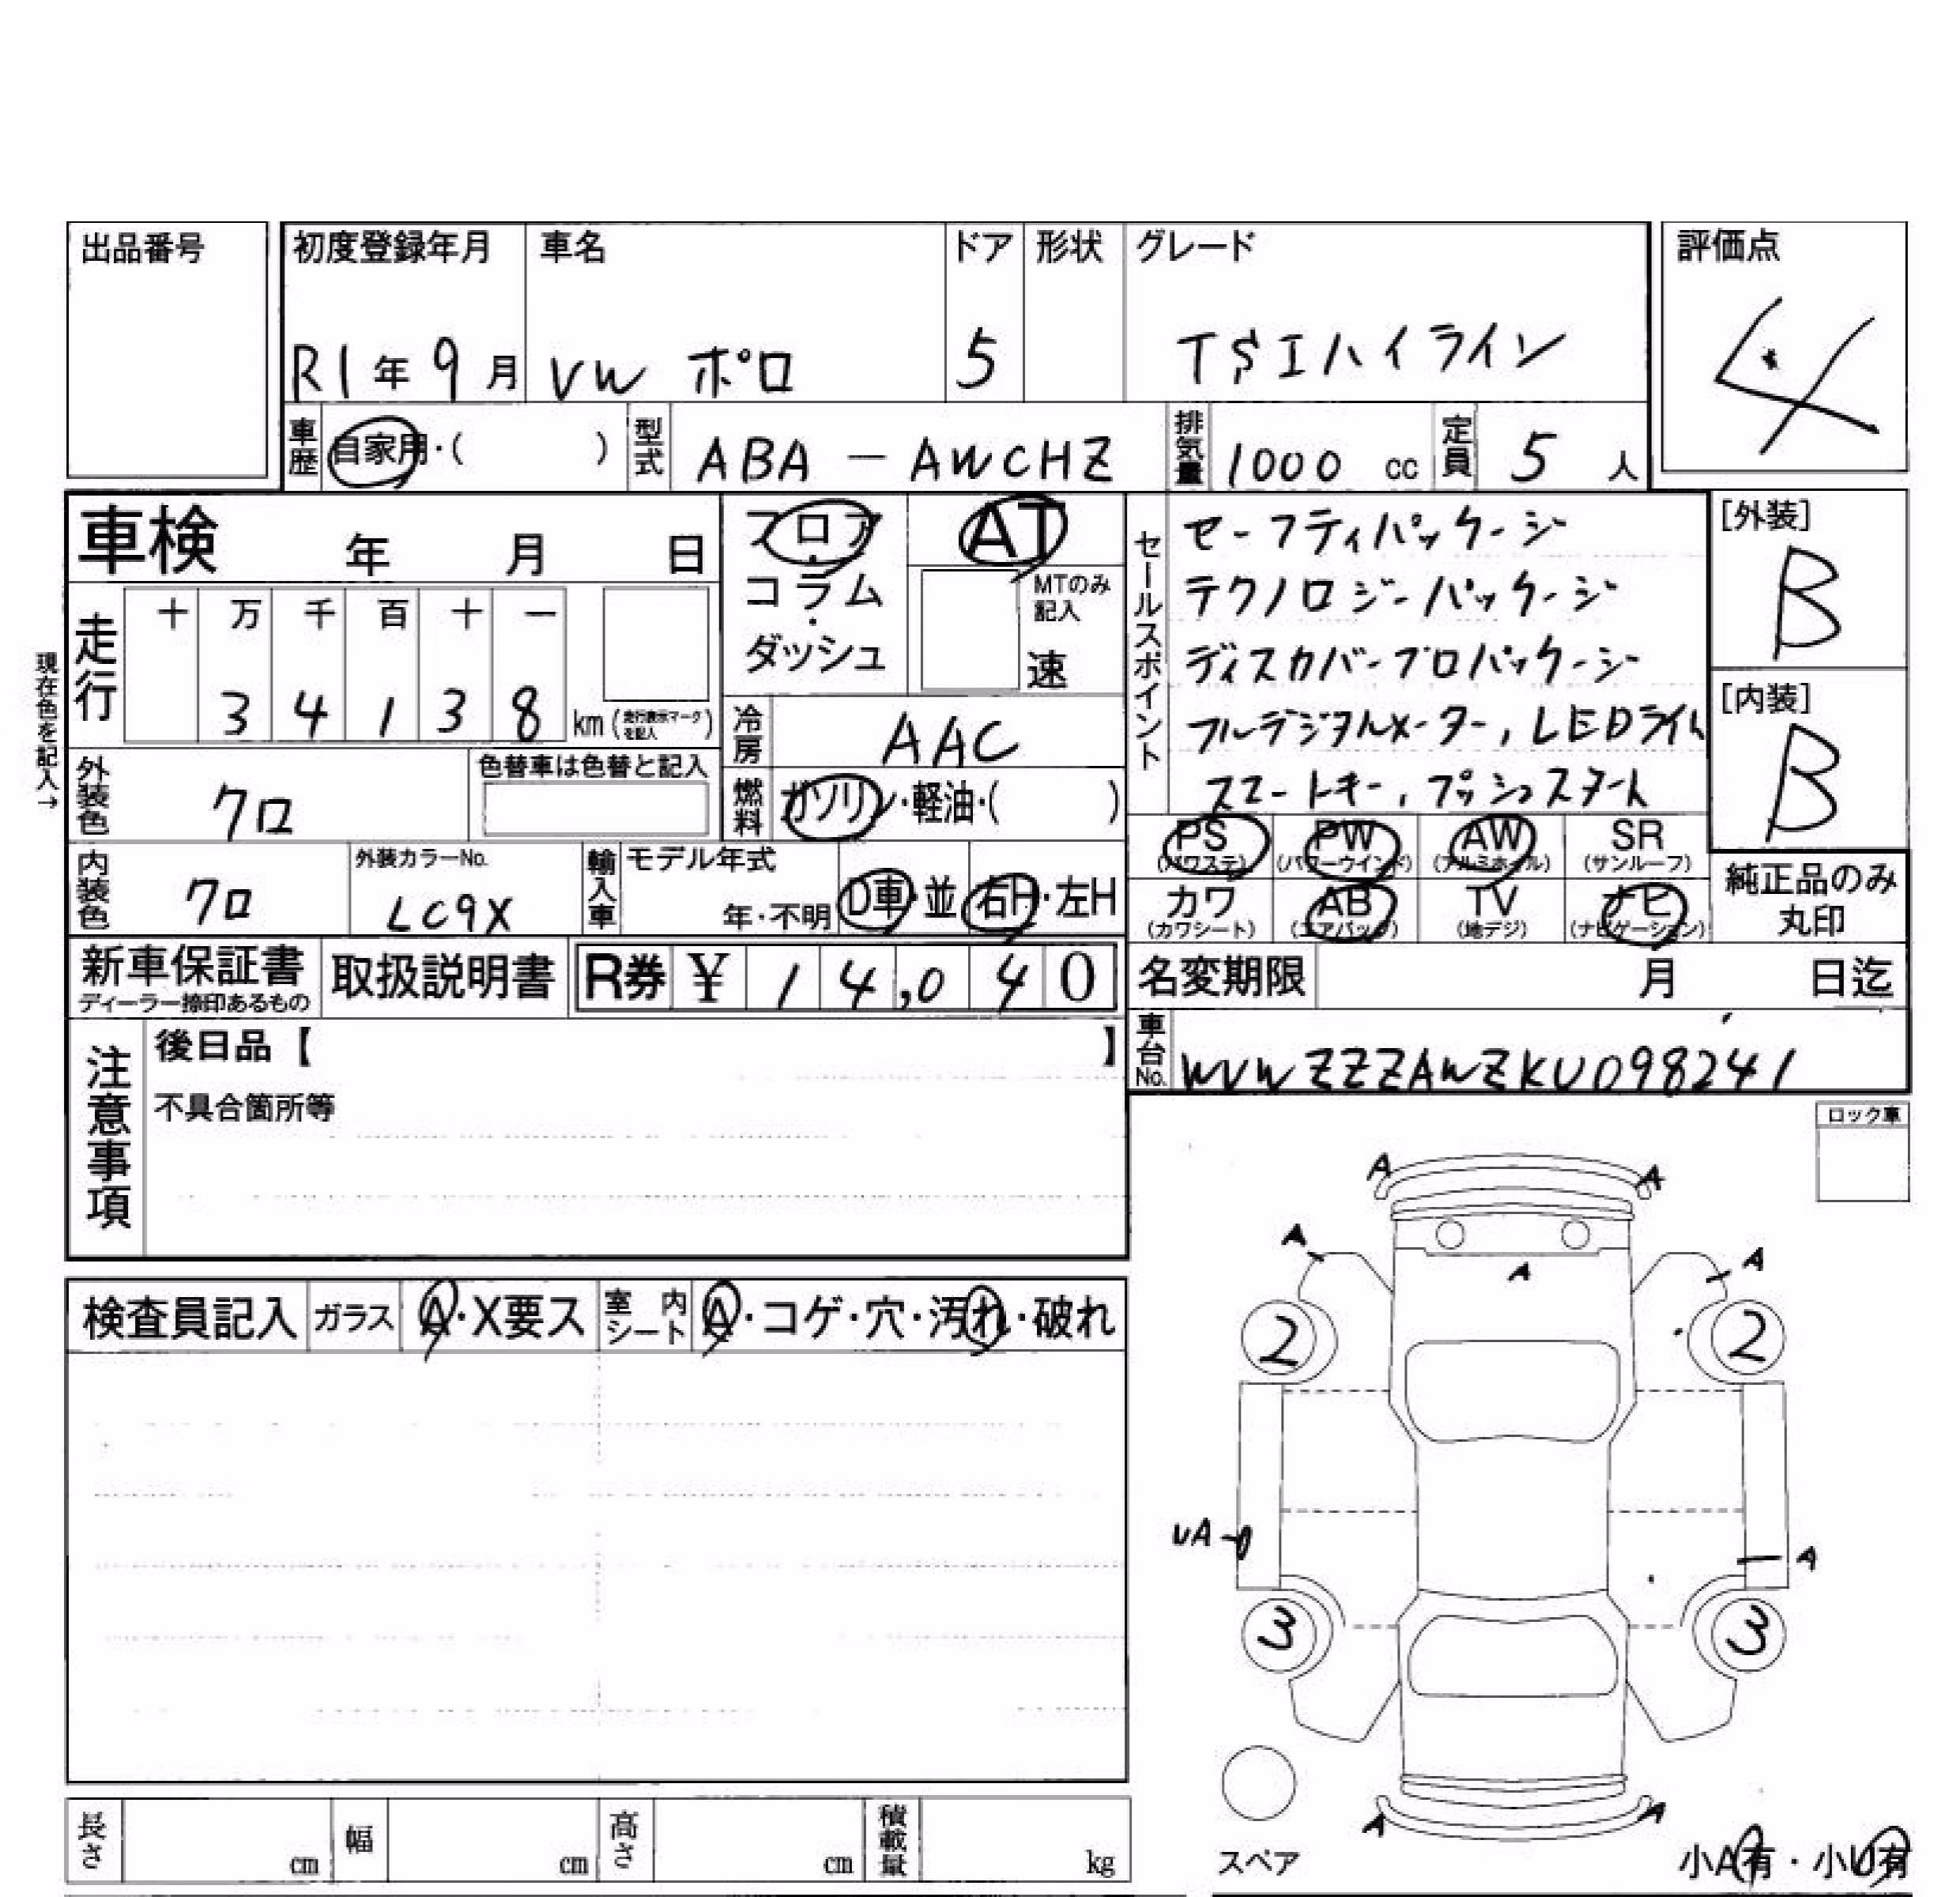 出品番号
初度登録年月 車名 ドア 形状 グレード 評価点
R1年9月 VW ポロ 5 TSIハイライン 4
車歴 自家用・( ) 型式 ABA-AWCHZ 排気量 1000 cc 定員 5 人
車検 年 月 日
フロア・コラム・ダッシュ
AT
MTのみ記入
速
現在色を記入→
走行 十 万 千 百 十 一
3 4 1 3 8 km (走行表示マークを記入)
冷房 AAC
外装色 クロ 色替車は色替と記入
燃料 ガソリン・軽油・( )
内装色 クロ 外装カラーNo. LC9X
輸入車 モデル年式 年・不明 D車・並 右H・左H
セールスポイント
セーフティパッケージ
テクノロジーパッケージ
ディスカバープロパッケージ
フルデジタルメーター, LEDライト
スマートキー, プッシュスタート
[外装]
B
[内装]
B
PS (パワステ) PW (パワーウインド) AW (アルミホイル) SR (サンルーフ)
カワ (カワシート) AB (エアバッグ) TV (地デジ) ナビ (ナビゲーション)
純正品のみ丸印
新車保証書 ディーラー捺印あるもの 取扱説明書 R券 ¥ 14,040
名変期限 月 日迄
車台No. WVWZZZAWZKU098241
注意事項
後日品【 】
不具合箇所等
ロック車
検査員記入 ガラス A・X要ス 室内シート A・コゲ・穴・汚れ・破れ
A A
A A
A
2 2
UA
A
3 3
A A
スペア
小A有・小U有
長さ cm 幅 cm 高さ cm 積載量 kg